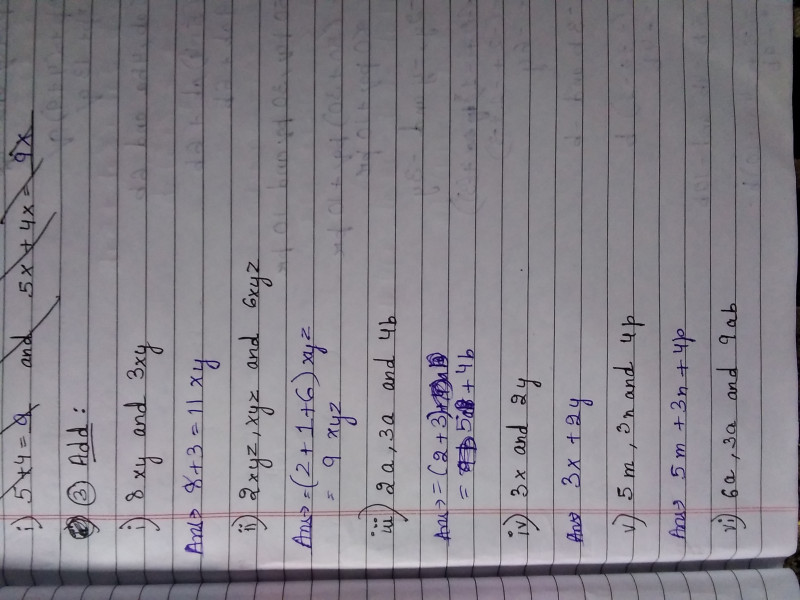 i) 5+4=9 and 5x+4x=9x
③ Add:
i) 8xy and 3xy
Ans→ 8+3=11xy
ii) 2xyz, xyz and 6xyz
Ans→ =(2+1+6)xyz
= 9xyz
iii) 2a, 3a and 4b
Ans→ =(2+3)
= 5a + 4b
iv) 3x and 2y
Ans→ 3x+2y
v) 5m, 3n and 4p
Ans→ 5m+3n+4p
vi) 6a, 3a and 9ab